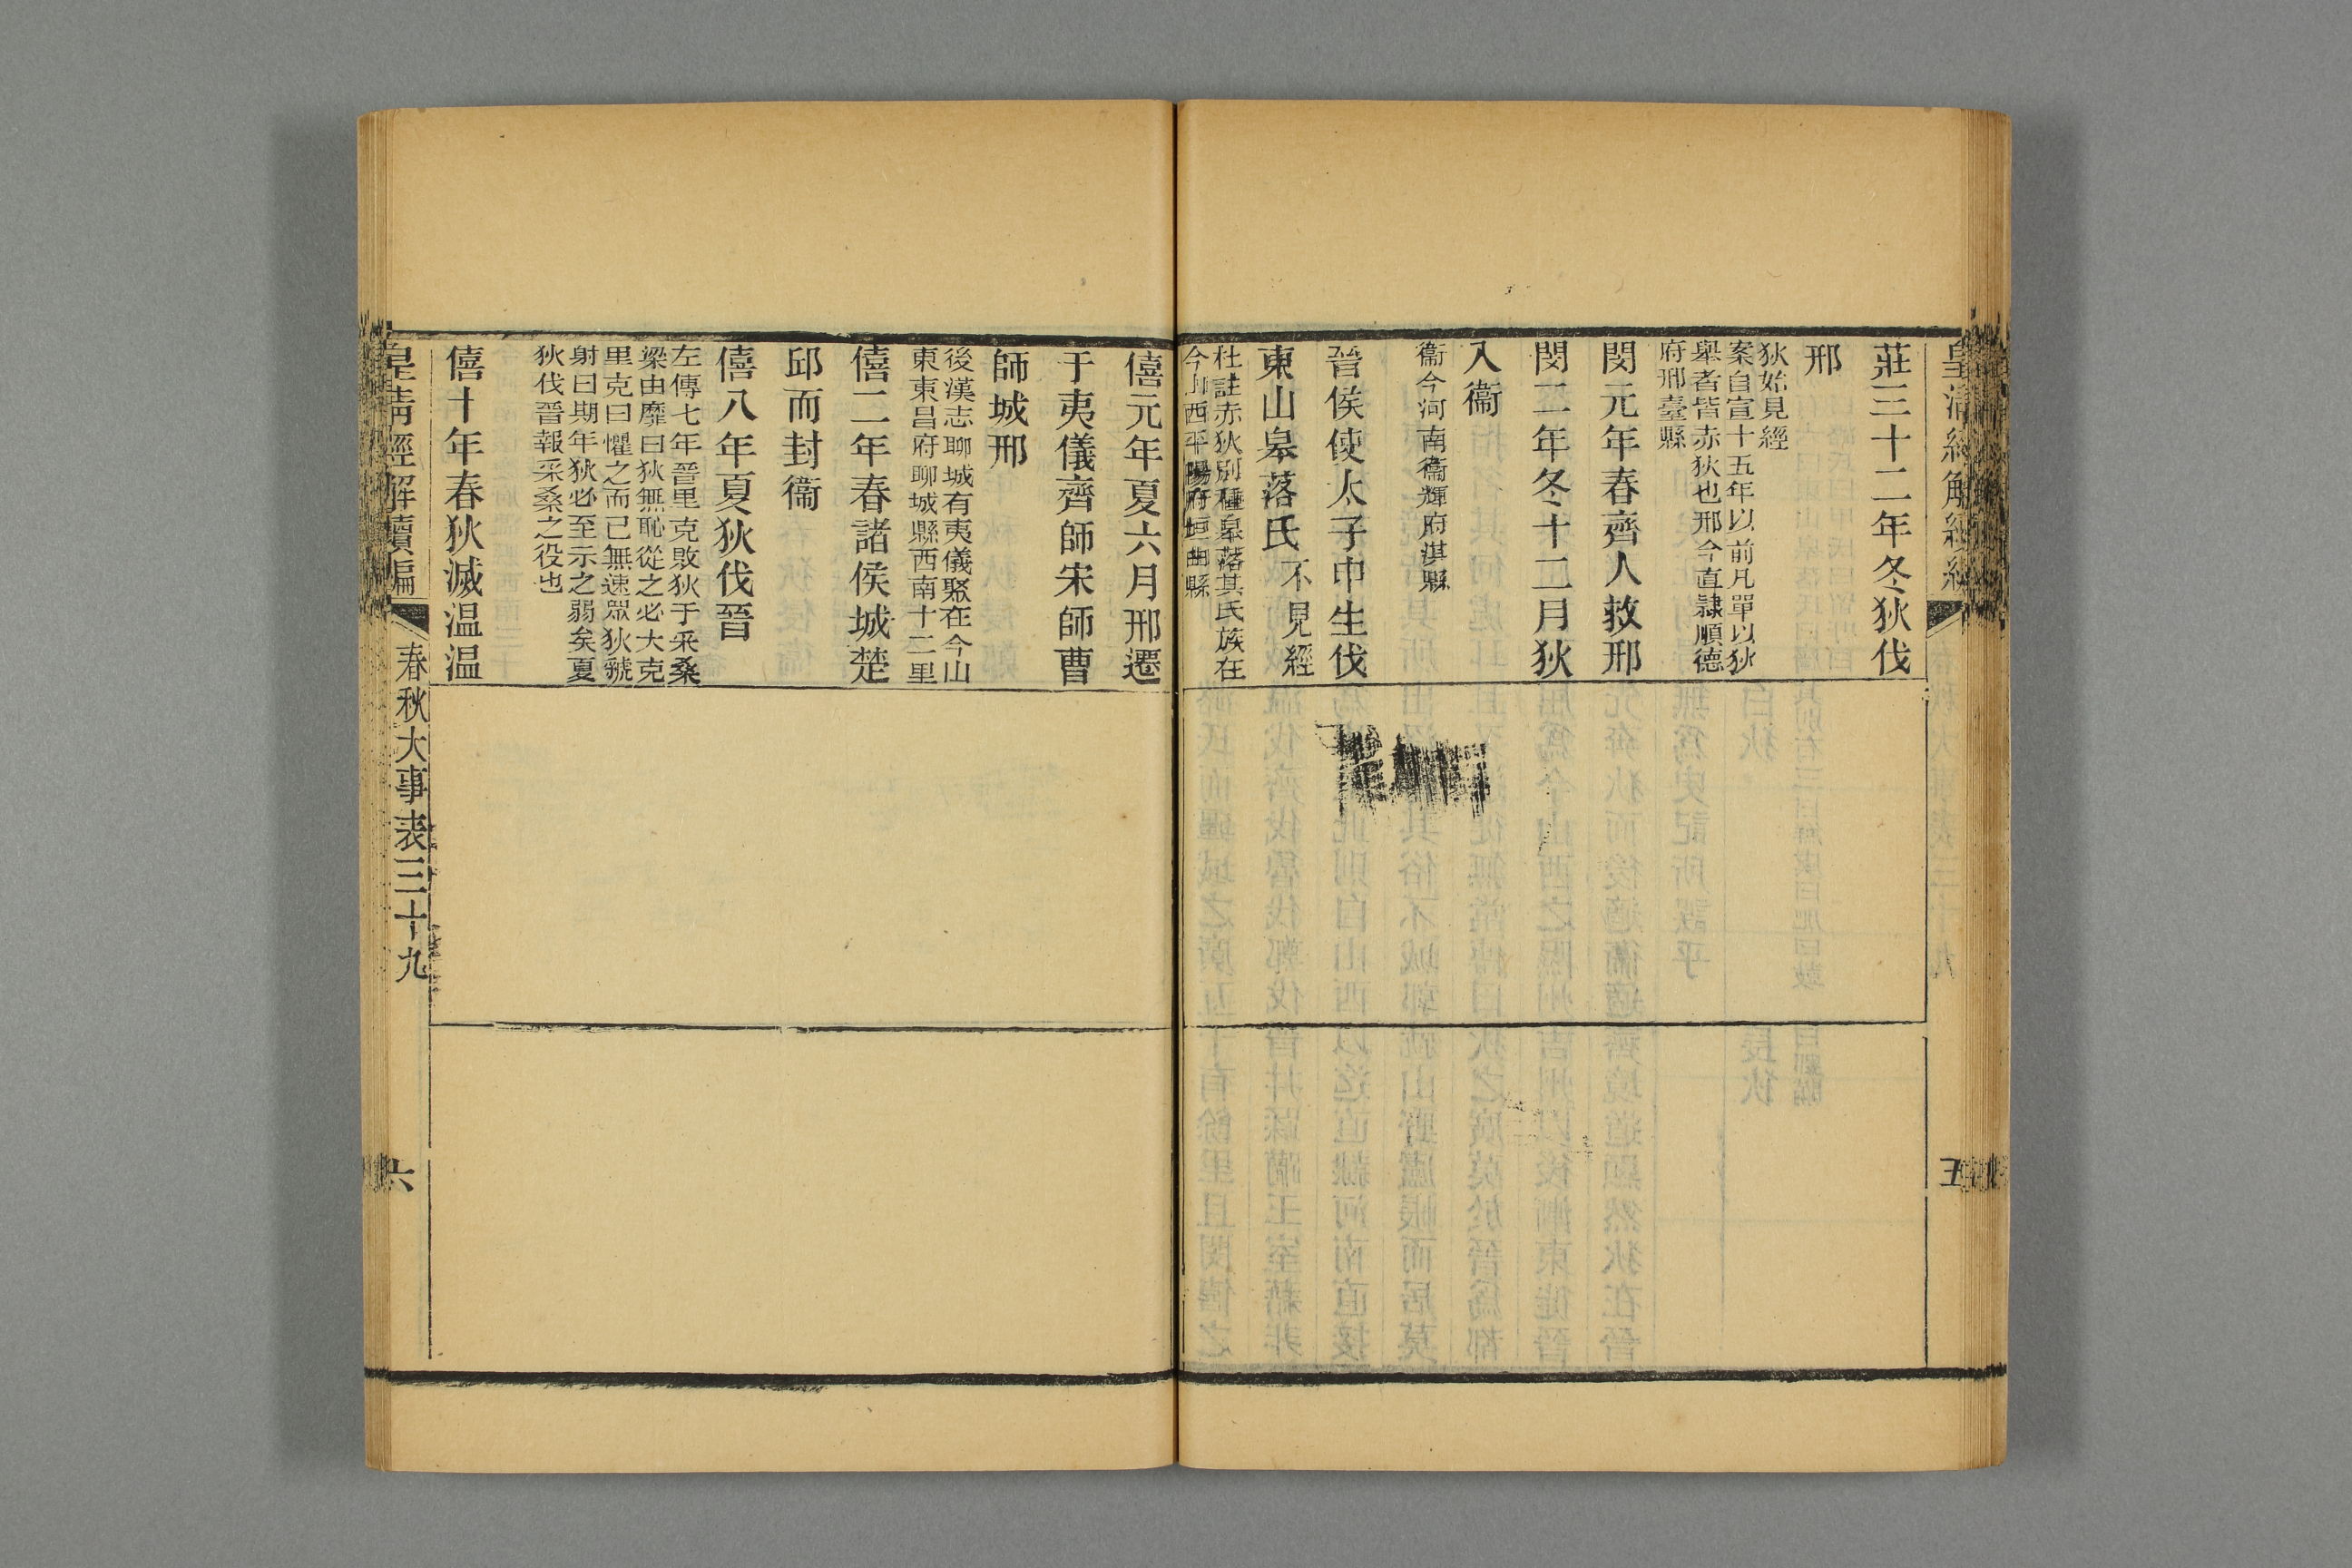 莊三十二年冬狄伐
邢
狄始見經
案自宣十五年以前凡單以狄
舉者皆赤狄也邢今直隸順德
府邢臺縣
閔元年春齊人救邢
閔二年冬十二月狄
入衞
衞今河南衞輝府淇縣
晉侯使太子申生伐
東山皋落氏不見經
杜註赤狄別種皋落其氏族在
今山西平陽府垣曲縣
五
僖元年夏六月邢遷
于夷儀齊師宋師曹
師城邢
後漢志聊城有夷儀聚在今山
東東昌府聊城縣西南十二里
僖二年春諸侯城楚
邱而封衞
僖八年夏狄伐晉
左傳七年晉里克敗狄于采桑
梁由靡曰狄無恥從之必大克
里克曰懼之而已無速眾狄虢
射曰期年狄必至示之弱矣夏
狄伐晉報采桑之役也
僖十年春狄滅温温
皇清經解續編 春秋大事表三十九 六